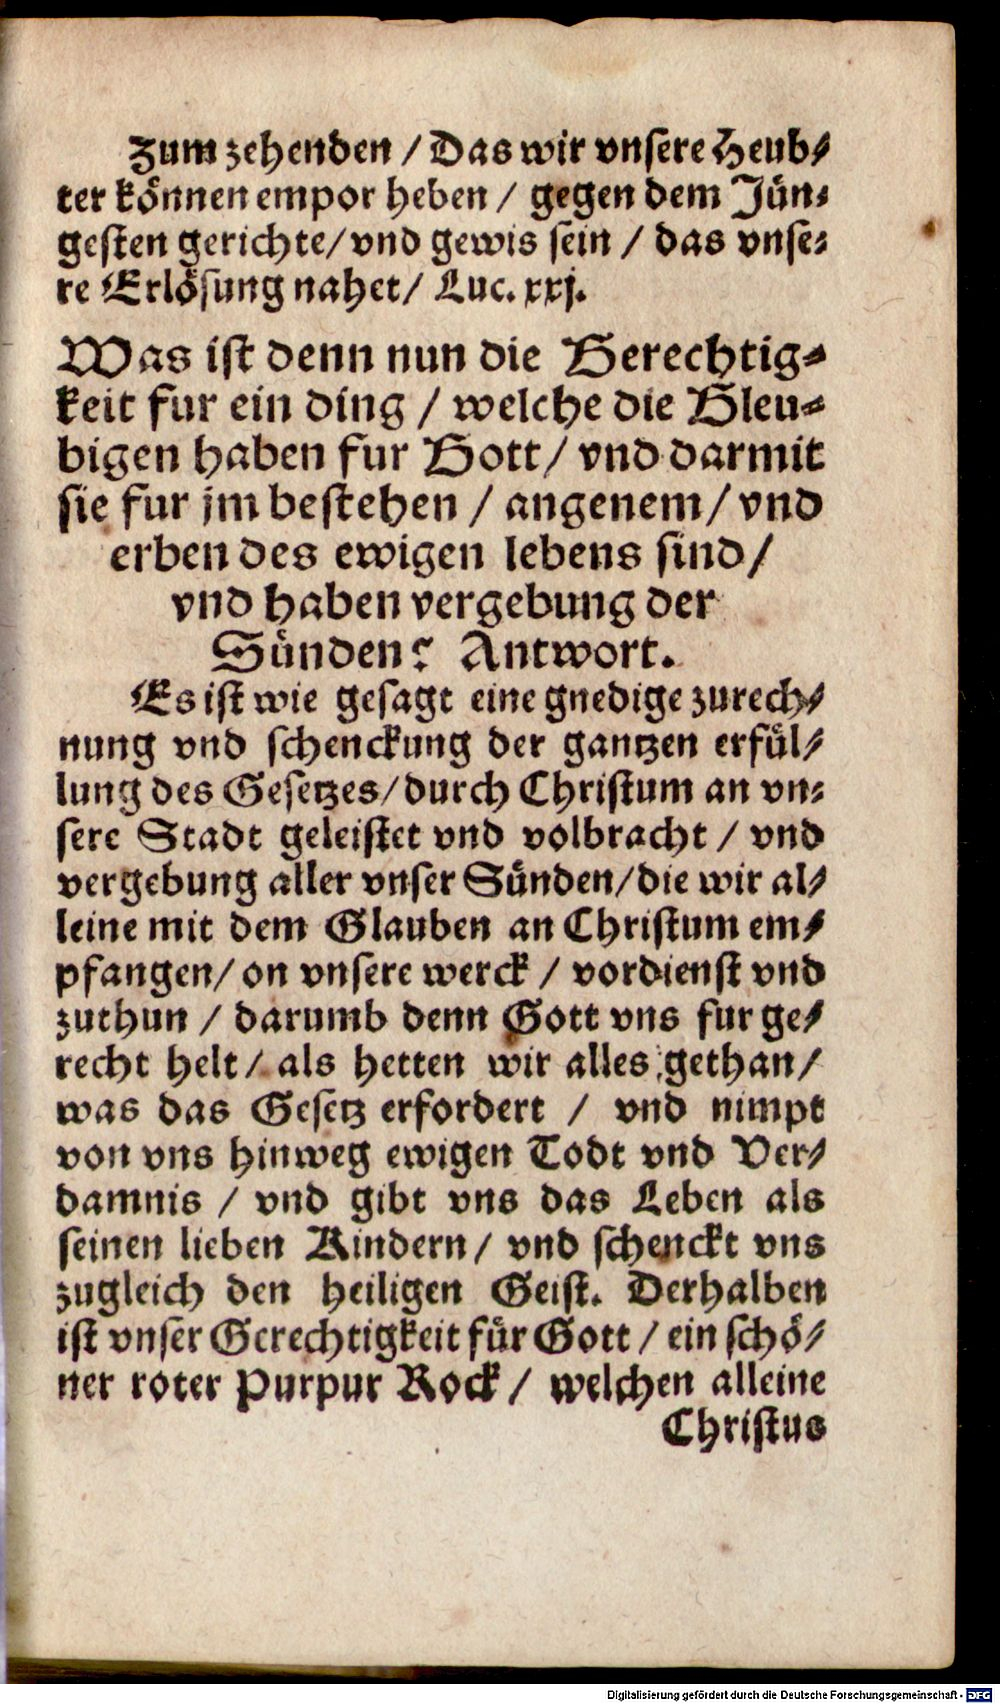 Zum zehenden / Das wir vnsere Heub⸗
ter können empor heben / gegen dem Jün⸗
gesten gerichte/ vnd gewis sein / das vnse⸗
re Erlösung nahet/ Luc. xxj.
Was ist denn nun die Gerechtig⸗
keit fur ein ding / welche die Gleu⸗
bigen haben fur Gott/ vnd darmit
sie fur jm bestehen / angenem/ vnd
erben des ewigen lebens sind/
vnd haben vergebung der
Sünden? Antwort.
Es ist wie gesagt eine gnedige zurech⸗
nung vnd schenckung der gantzen erfül⸗
lung des Gesetzes/ durch Christum an vn⸗
sere Stadt geleistet vnd volbracht / vnd
vergebung aller vnser Sünden/ die wir al⸗
leine mit dem Glauben an Christum em⸗
pfangen/ on vnsere werck / vordienst vnd
zuthun / darumb denn Gott vns fur ge⸗
recht helt/ als hetten wir alles gethan/
was das Gesetz erfordert / vnd nimpt
von vns hinweg ewigen Todt vnd Ver⸗
damnis / vnd gibt vns das Leben als
seinen lieben Kindern/ vnd schenckt vns
zugleich den heiligen Geist. Derhalben
ist vnser Gerechtigkeit für Gott / ein schö⸗
ner roter Purpur Rock / welchen alleine
Christus
Digitalisierung gefördert durch die Deutsche Forschungsgemeinschaft - DFG